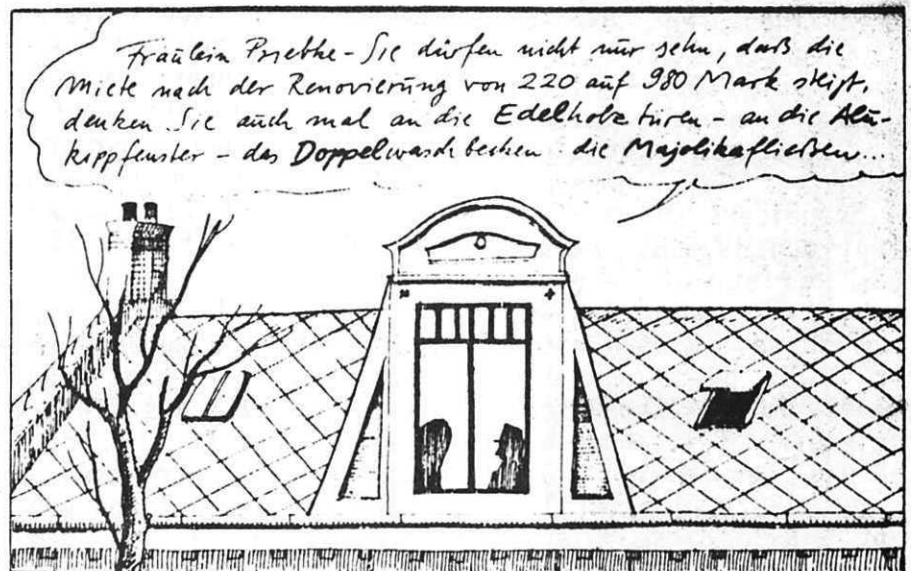 Fräulein Prsebke - Sie dürfen nicht nur sehn, daß die
Miete nach der Renovierung von 220 auf 980 Mark steigt,
denken Sie auch mal an die Edelholztüren - an die Alu-
kippfenster - das Doppelwaschbecken die Majolikafließen...